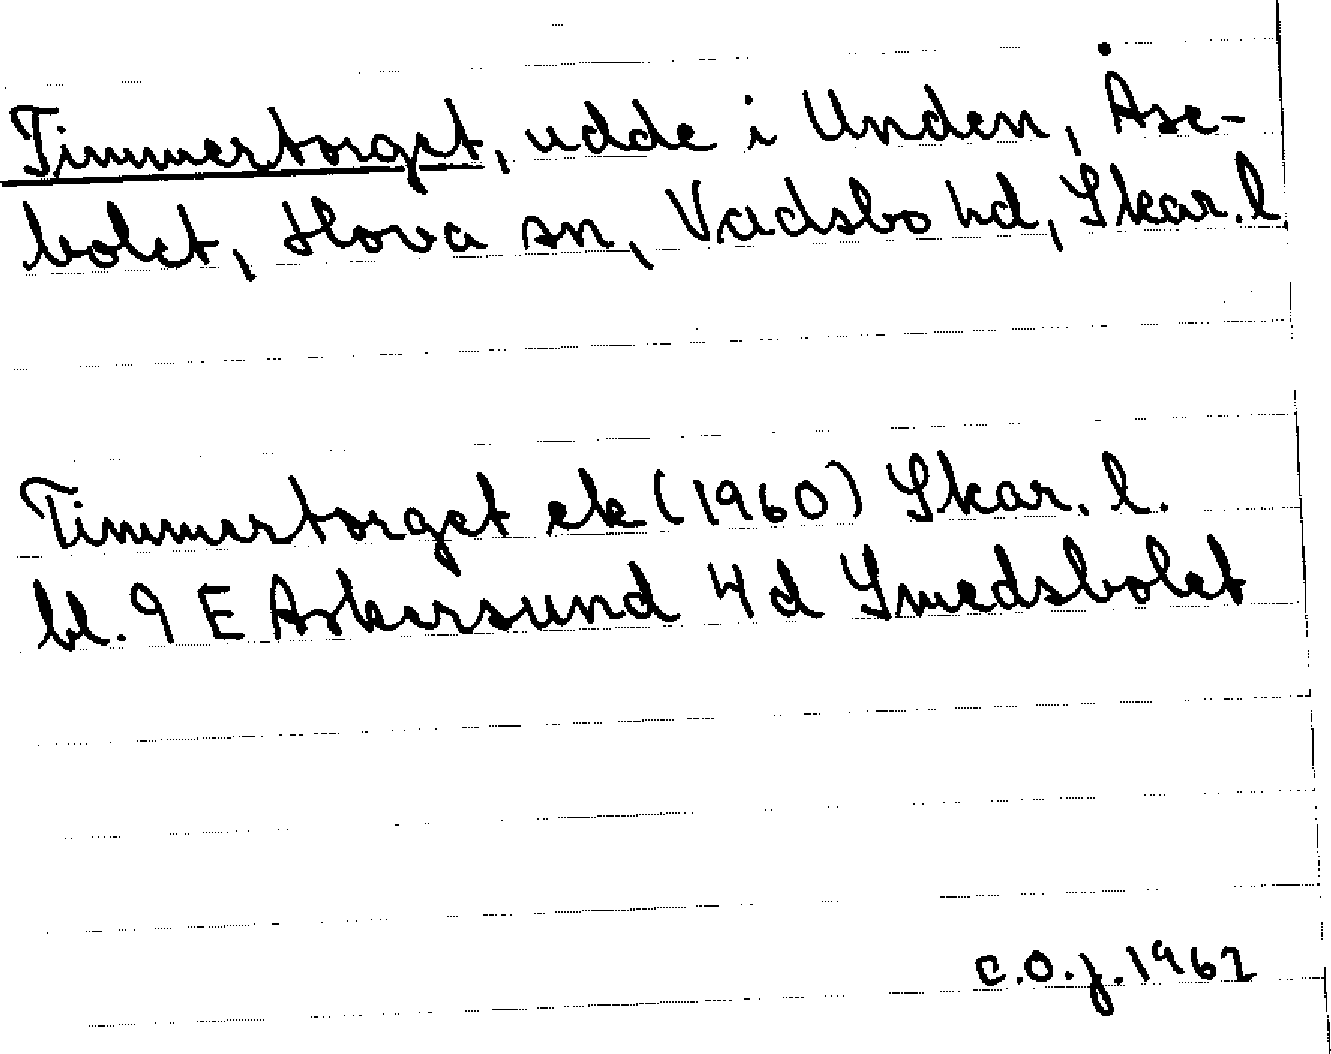 Timmertorget, udde i Unden, Åse-
bolet, Hova sn, Vadsbo hd, Skar. l.
Timmertorget ek (1960) Skar. l.
bl. 9 E Askersund 4 d Smedsbolet
C.O.J. 1962